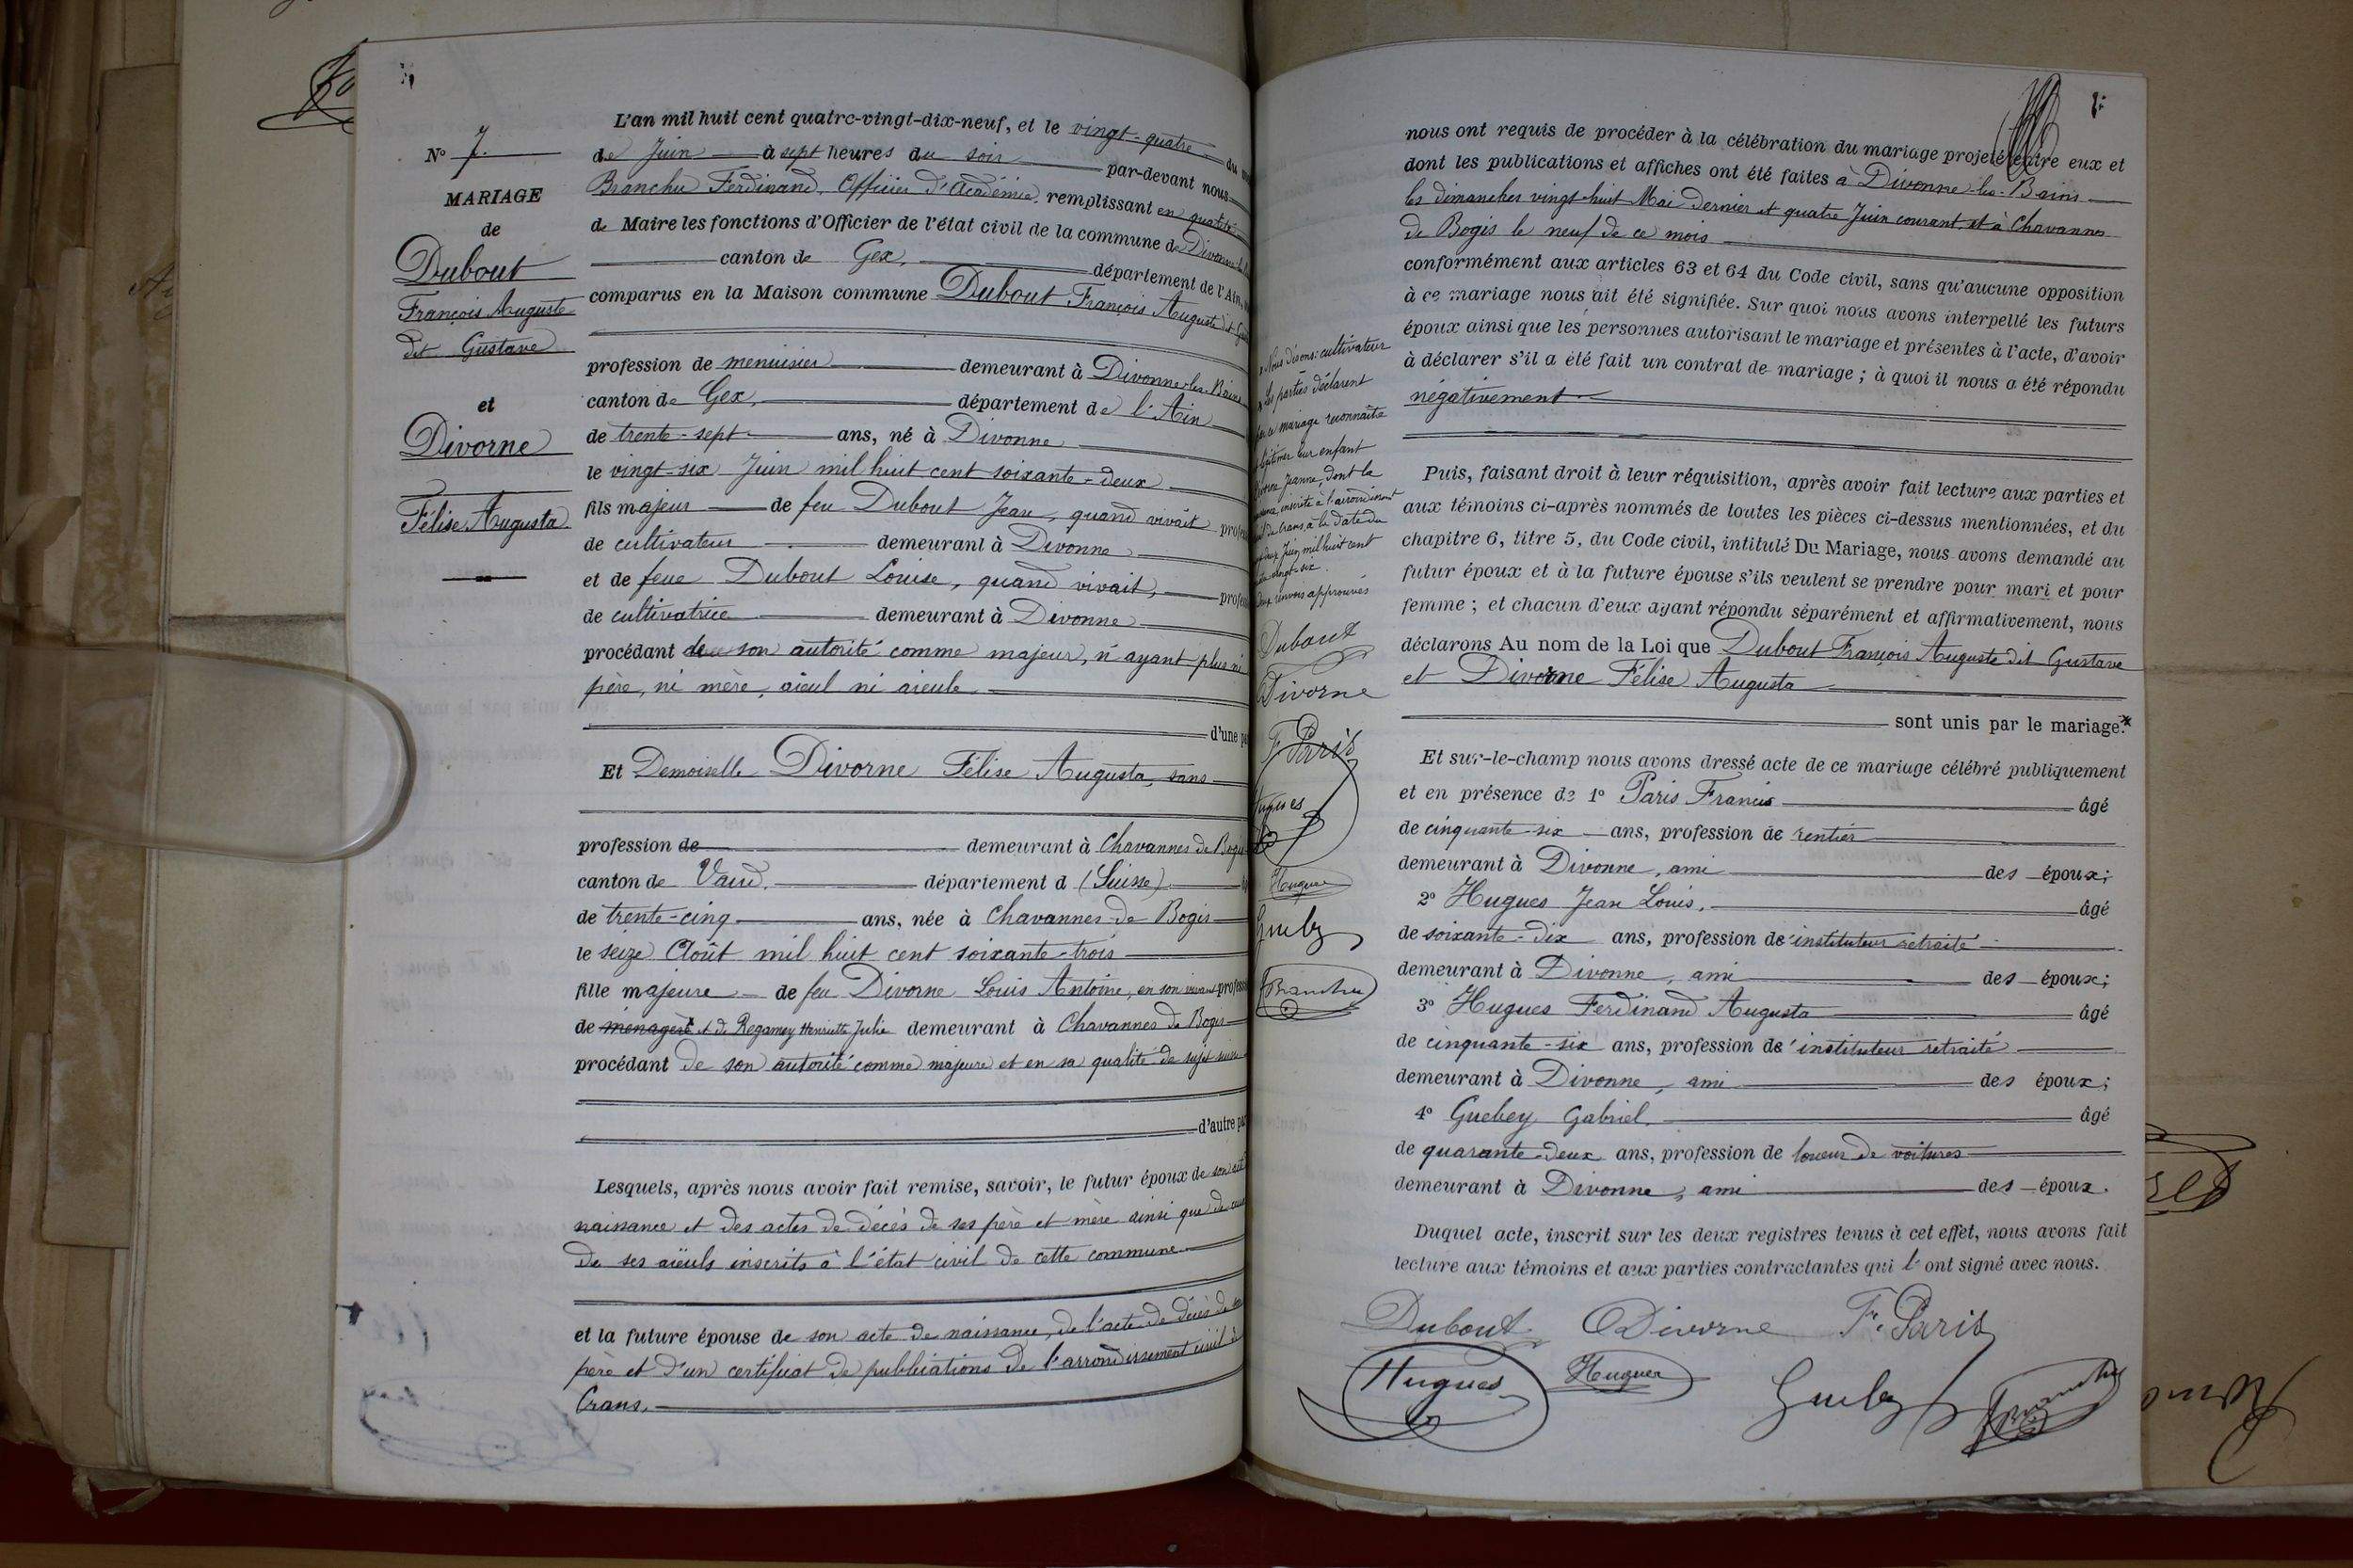 N° 7.
MARIAGE
de
Dubout
François Auguste
dit Gustave
et
Divorne
Félise Augusta
L'an mil huit cent quatre-vingt-dix-neuf, et le vingt-quatre du
de Juin à sept heures du soir par-devant nous
Branchu Ferdinand, Officier d'Académie, remplissant en qualité
de Maire les fonctions d'Officier de l'état civil de la commune de Divonne-les-
canton de Gex, département de l'Ain,
comparus en la Maison commune Dubout François Auguste dit
profession de menuisier demeurant à Divonne-les-Bains
canton de Gex, département de l'Ain
de trente-sept ans, né à Divonne
le vingt-six Juin mil huit cent soixante-deux
fils majeur de feu Dubout Jean, quand vivait
de cultivateur demeurant à Divonne
et de feue Dubout Louise, quand vivait,
de cultivatrice demeurant à Divonne
procédant de son autorité comme majeur, n'ayant plus ni
père, ni mère, aïeul ni aïeule
d'une
Et Demoiselle Divorne Félise Augusta, sans
profession de demeurant à Chavannes de Bogis
canton de Vaud, département d (Suisse)
de trente-cinq ans, née à Chavannes de Bogis
le seize Août mil huit cent soixante-trois
fille majeure de feu Divorne Louis Antoine, en son vivant
de ménagère et de Regamey Henriette Julie demeurant à Chavannes de Bogis
procédant de son autorité comme majeure et en sa qualité de sujet suisse
d'autre
Lesquels, après nous avoir fait remise, savoir, le futur époux de son
naissance et des actes de décès de ses père et mère ainsi que de ceux
de ses aïeuls inscrits à l'état civil de cette commune
et la future épouse de son acte de naissance, de l'acte de décès de
père et d'un certificat de publications de l'arrondissement civil de
Crans.
Nous disons: cultivateur
Les parties déclarent
ce mariage reconnaître
légitimer leur enfant
Jeanne, dont la
inscrite à l'arrondissement
de Crans, à la date du
Juin mil huit cent
vingt-six.
Deux renvois approuvés
Dubout
Divorne
F. Paris
Hugues
Hugues
Gueby
Branchu
nous ont requis de procéder à la célébration du mariage projeté entre eux et
dont les publications et affiches ont été faites à Divonne-les-Bains
les dimanches vingt-huit Mai dernier et quatre Juin courant, et à Chavannes
de Bogis le neuf de ce mois
conformément aux articles 63 et 64 du Code civil, sans qu'aucune opposition
à ce mariage nous ait été signifiée. Sur quoi nous avons interpellé les futurs
époux ainsi que les personnes autorisant le mariage et présentes à l'acte, d'avoir
à déclarer s'il a été fait un contrat de mariage ; à quoi il nous a été répondu
négativement
Puis, faisant droit à leur réquisition, après avoir fait lecture aux parties et
aux témoins ci-après nommés de toutes les pièces ci-dessus mentionnées, et du
chapitre 6, titre 5, du Code civil, intitulé Du Mariage, nous avons demandé au
futur époux et à la future épouse s'ils veulent se prendre pour mari et pour
femme ; et chacun d'eux ayant répondu séparément et affirmativement, nous
déclarons Au nom de la Loi que Dubout François Auguste dit Gustave
et Divorne Félise Augusta
sont unis par le mariage.*
Et sur-le-champ nous avons dressé acte de ce mariage célébré publiquement
et en présence de 1° Paris Francis âgé
de cinquante-six ans, profession de rentier
demeurant à Divonne, ami des époux;
2° Hugues Jean Louis, âgé
de soixante-dix ans, profession de instituteur retraité
demeurant à Divonne, ami des époux;
3° Hugues Ferdinand Augusta âgé
de cinquante-six ans, profession de instituteur retraité
demeurant à Divonne, ami des époux;
4° Guebey Gabriel, âgé
de quarante-deux ans, profession de loueur de voitures
demeurant à Divonne, ami des époux.
Duquel acte, inscrit sur les deux registres tenus à cet effet, nous avons fait
lecture aux témoins et aux parties contractantes qui l'ont signé avec nous.
Dubout Divorne F. Paris
Hugues Hugues Gueby Branchu